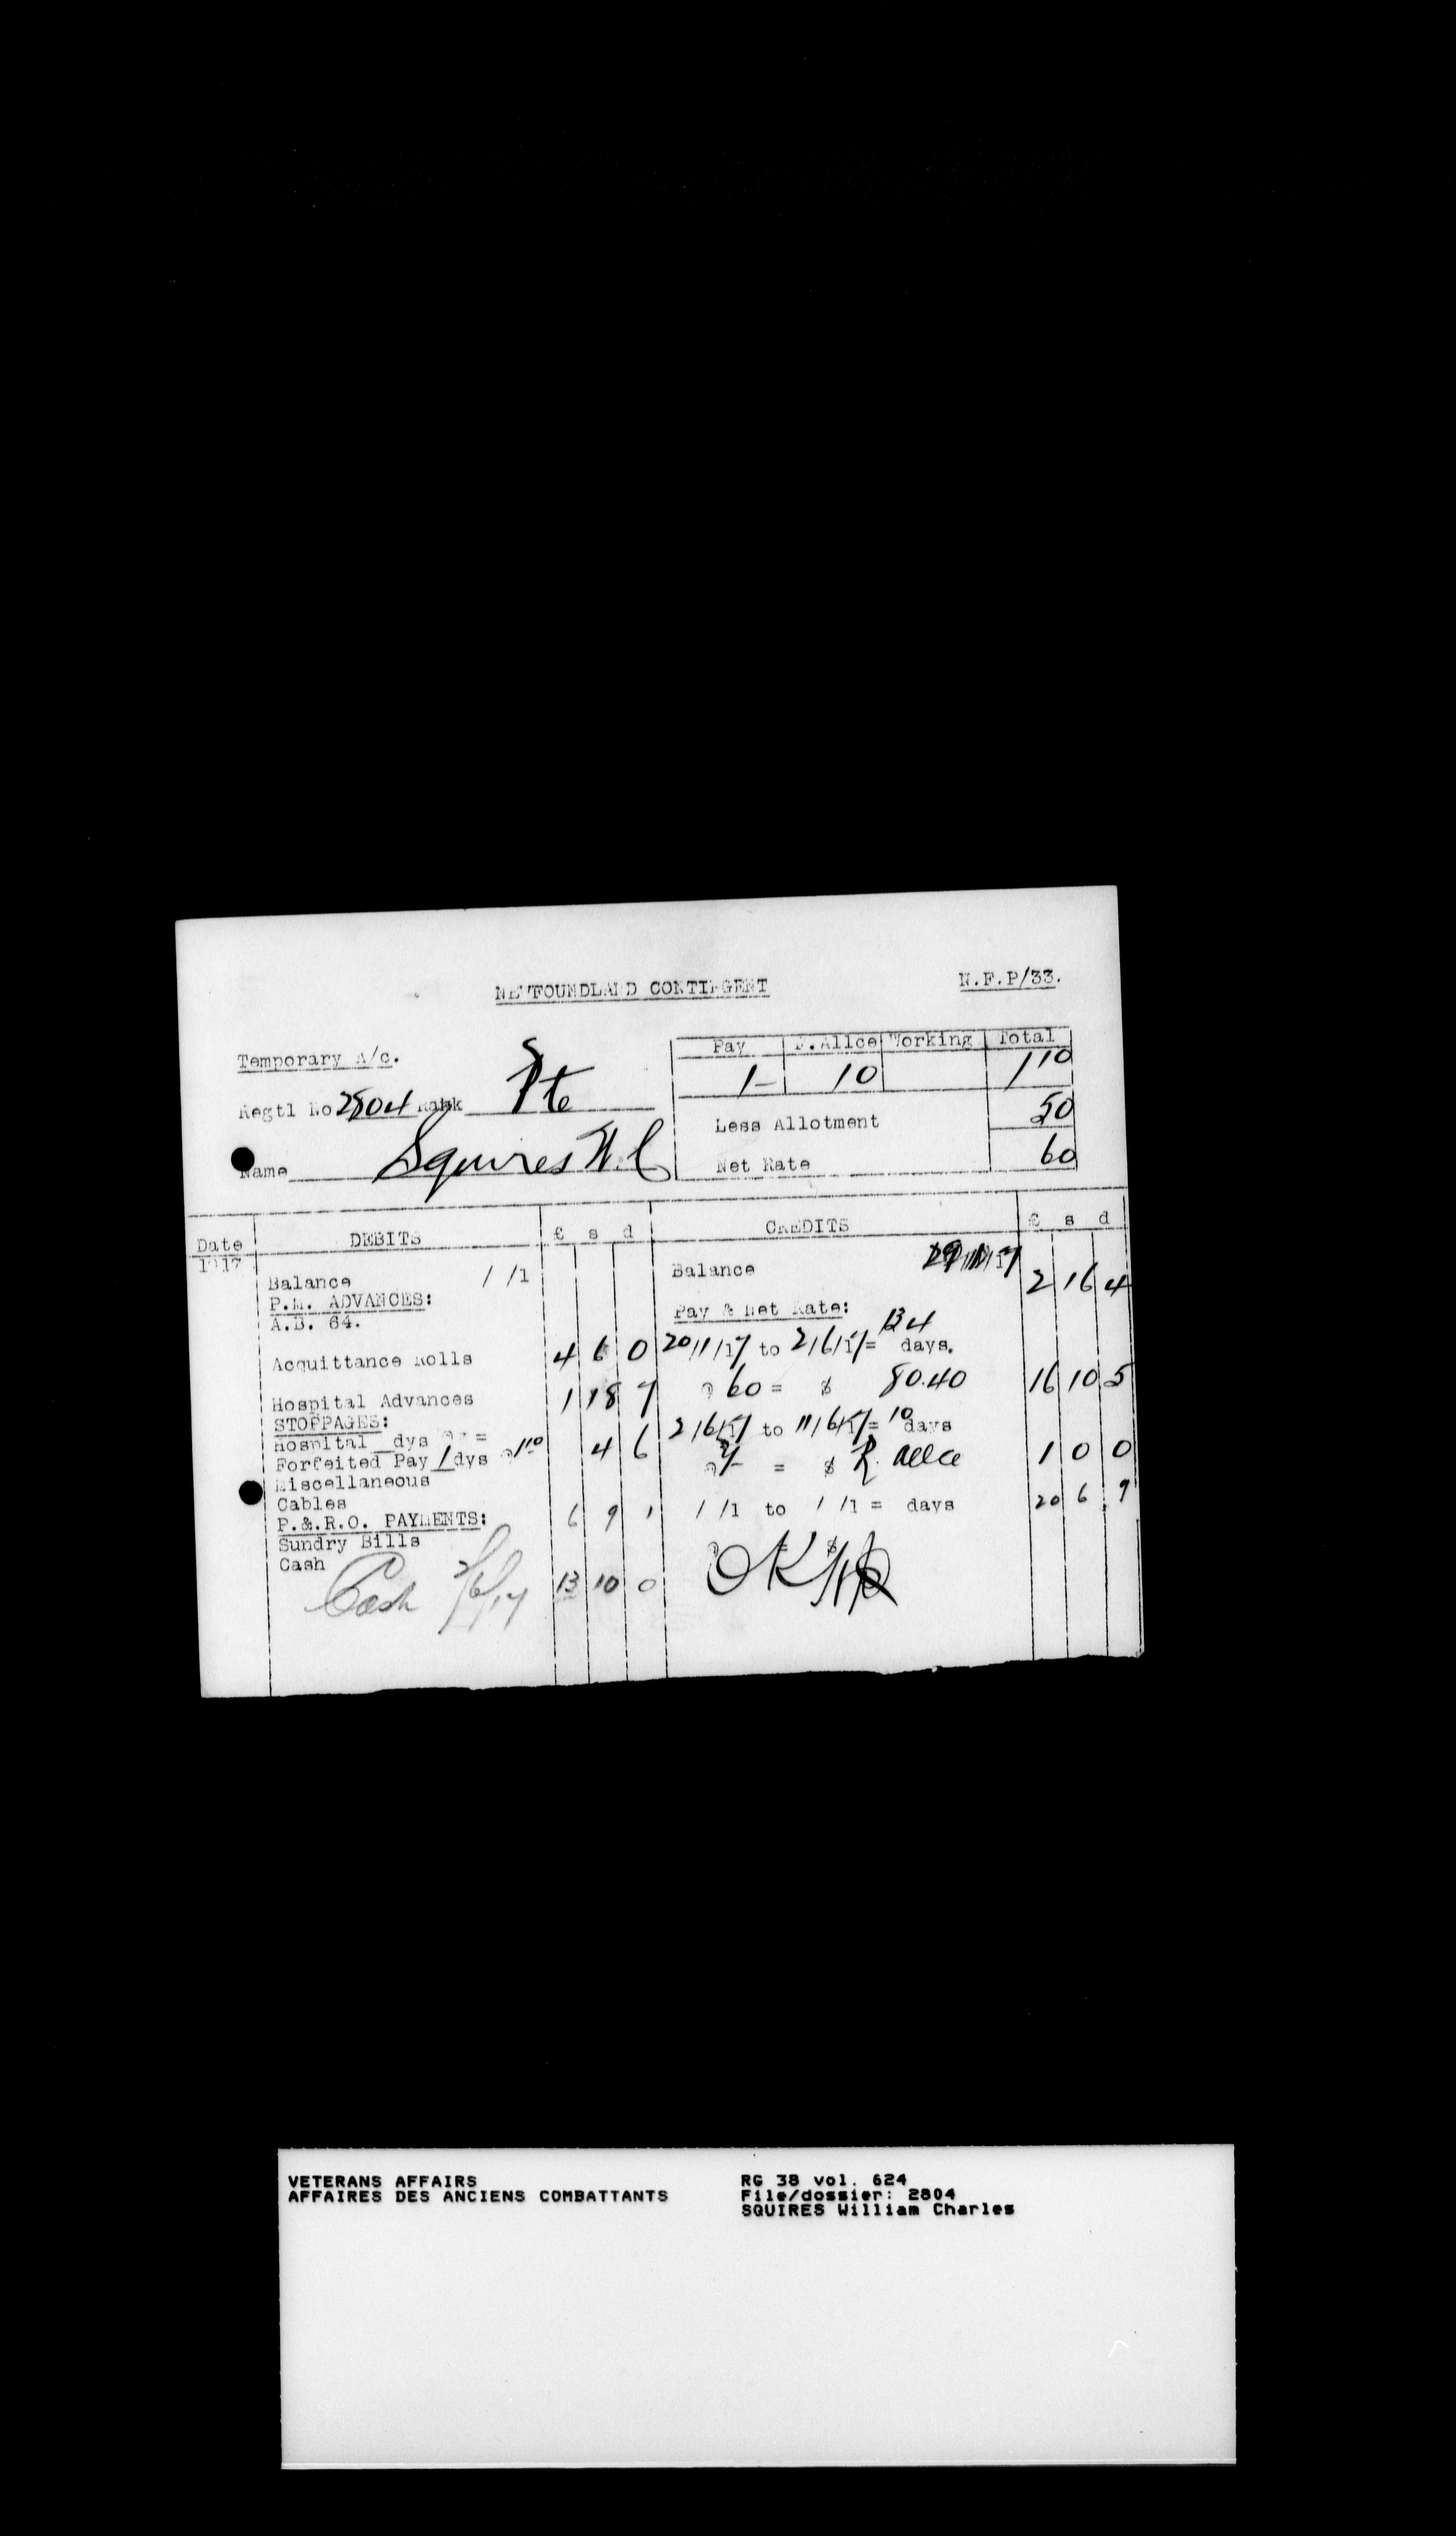 NEWFOUNDLAND CONTINGENT N.F.P/33.
Temporary A/c.
Pay F.Allce Working Total
1- 10 1 10
Regtl No 2804 Rank Pte
Less Allotment 50
Name Squires W.C
Net Rate 60
Date DEBITS £ s d CREDITS £ s d
1917
Balance / /1 Balance 2 16 4
P.M. ADVANCES:
A.B. 64. Pay & Net Rate:
Acquittance Rolls 4 6 0 20/1/17 to 2/6/17= 134 days.
Hospital Advances 1 18 7 @ 60 = $ 80.40 16 10 5
STOPPAGES:
Hospital dys @ = 2/6/17 to 11/6/17= 10 days
Forfeited Pay 1 dys @ 1 10 4 6 @ 2/- = $ R. Allce 1 0 0
Miscellaneous
Cables 6 9 1 / /1 to / /1 = days 20 6 9
P.&.R.O. PAYMENTS:
Sundry Bills @ = $
Cash OK
Cash 2/6/17 13 10 0
VETERANS AFFAIRS RG 38 vol. 624
AFFAIRES DES ANCIENS COMBATTANTS File/dossier: 2804
SQUIRES William Charles